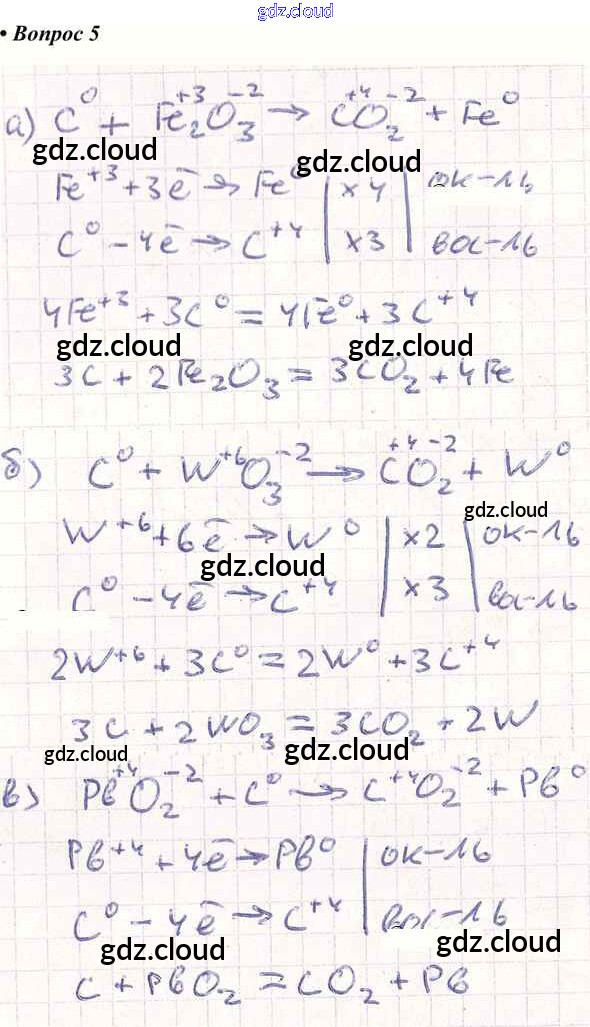 gdz.cloud
• Вопрос 5
а) C⁰ + Fe₂⁺³O₃⁻² → C⁺⁴O₂⁻² + Fe⁰
gdz.cloud gdz.cloud
Fe⁺³ + 3ē → Fe⁰ | ×4 | ок-ль
C⁰ - 4ē → C⁺⁴ | ×3 | вос-ль
4Fe⁺³ + 3C⁰ = 4Fe⁰ + 3C⁺⁴
gdz.cloud gdz.cloud
3C + 2Fe₂O₃ = 3CO₂ + 4Fe
б) C⁰ + W⁺⁶O₃⁻² → C⁺⁴O₂⁻² + W⁰
gdz.cloud
W⁺⁶ + 6ē → W⁰ | ×2 | ок-ль
gdz.cloud
C⁰ - 4ē → C⁺⁴ | ×3 | вос-ль
2W⁺⁶ + 3C⁰ = 2W⁰ + 3C⁺⁴
3C + 2WO₃ = 3CO₂ + 2W
gdz.cloud gdz.cloud
в) Pb⁺⁴O₂⁻² + C⁰ → C⁺⁴O₂⁻² + Pb⁰
Pb⁺⁴ + 4ē → Pb⁰ | ок-ль
C⁰ - 4ē → C⁺⁴ | вос-ль
gdz.cloud gdz.cloud
C + PbO₂ = CO₂ + Pb